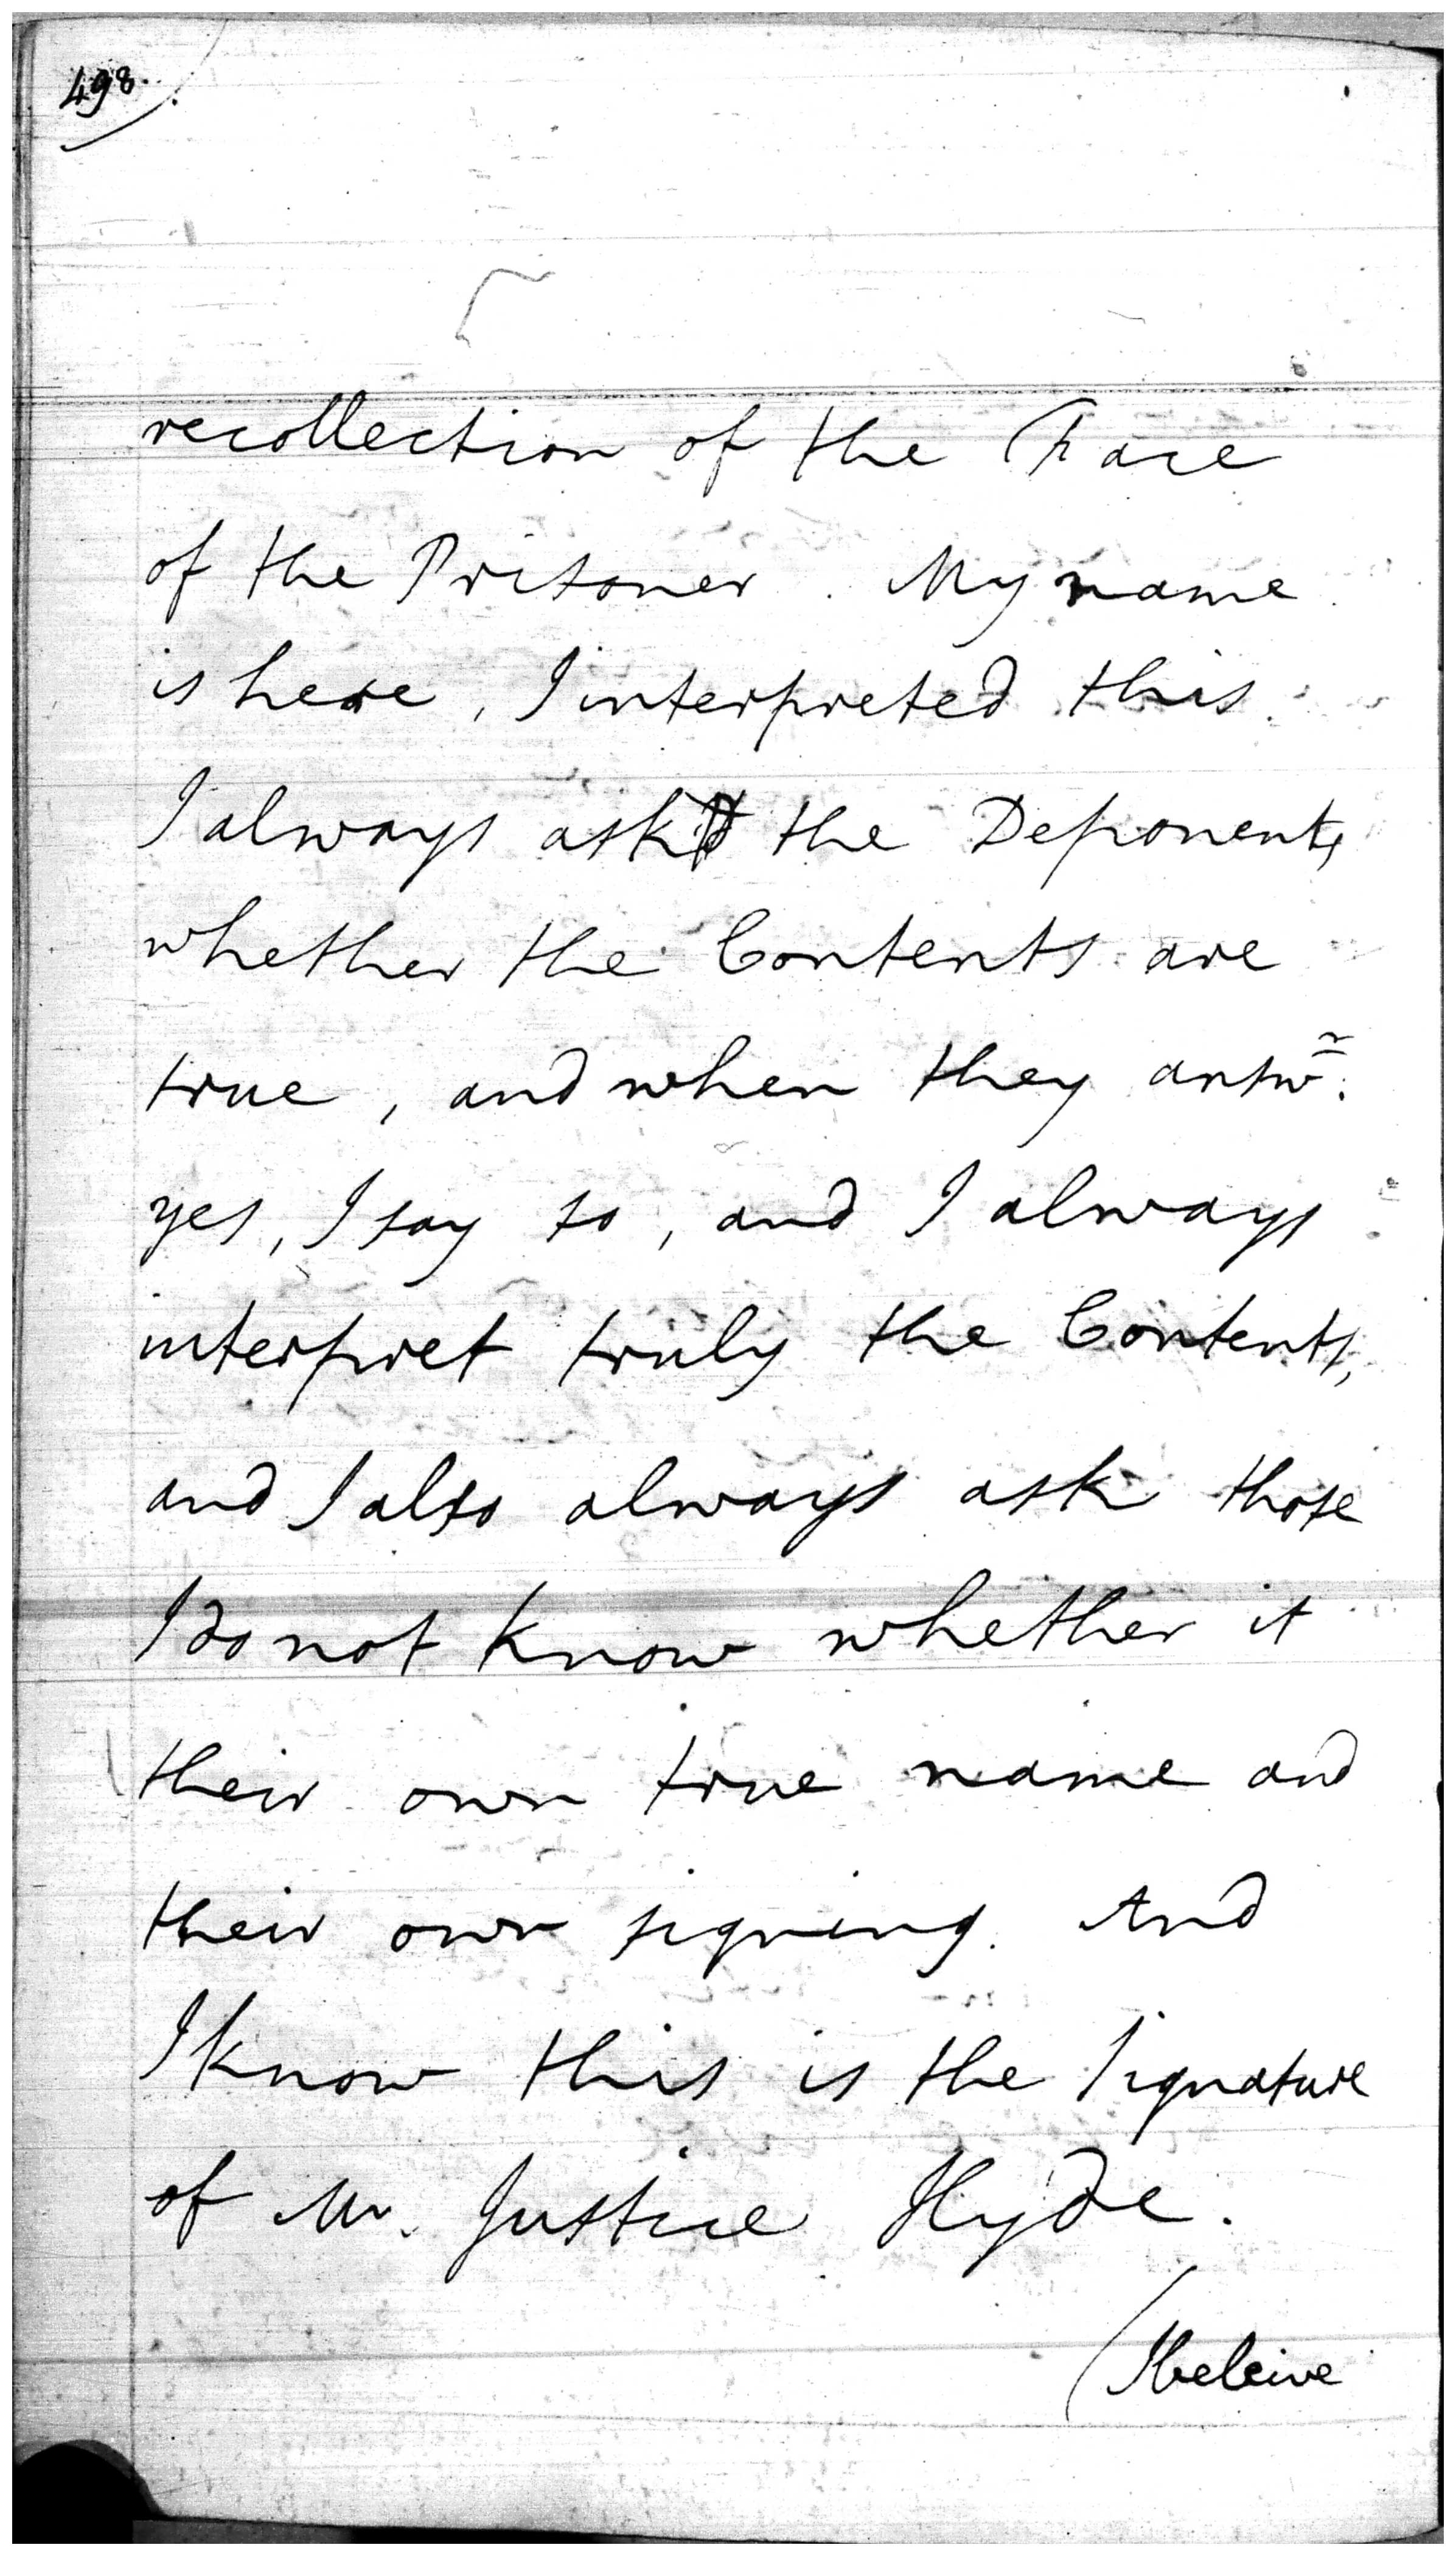 498.
recollection of the Face
of the Prisoner. My name
is here, I interpreted this.
I always ask the Deponents
whether the Contents are
true, and when they answ.
yes, I say so, and I always
interpret truly the Contents,
and I also always ask those
I do not know whether it
their own true name and
their own signing. And
I know this is the Signature
of Mr. Justice Hyde.
I beleive